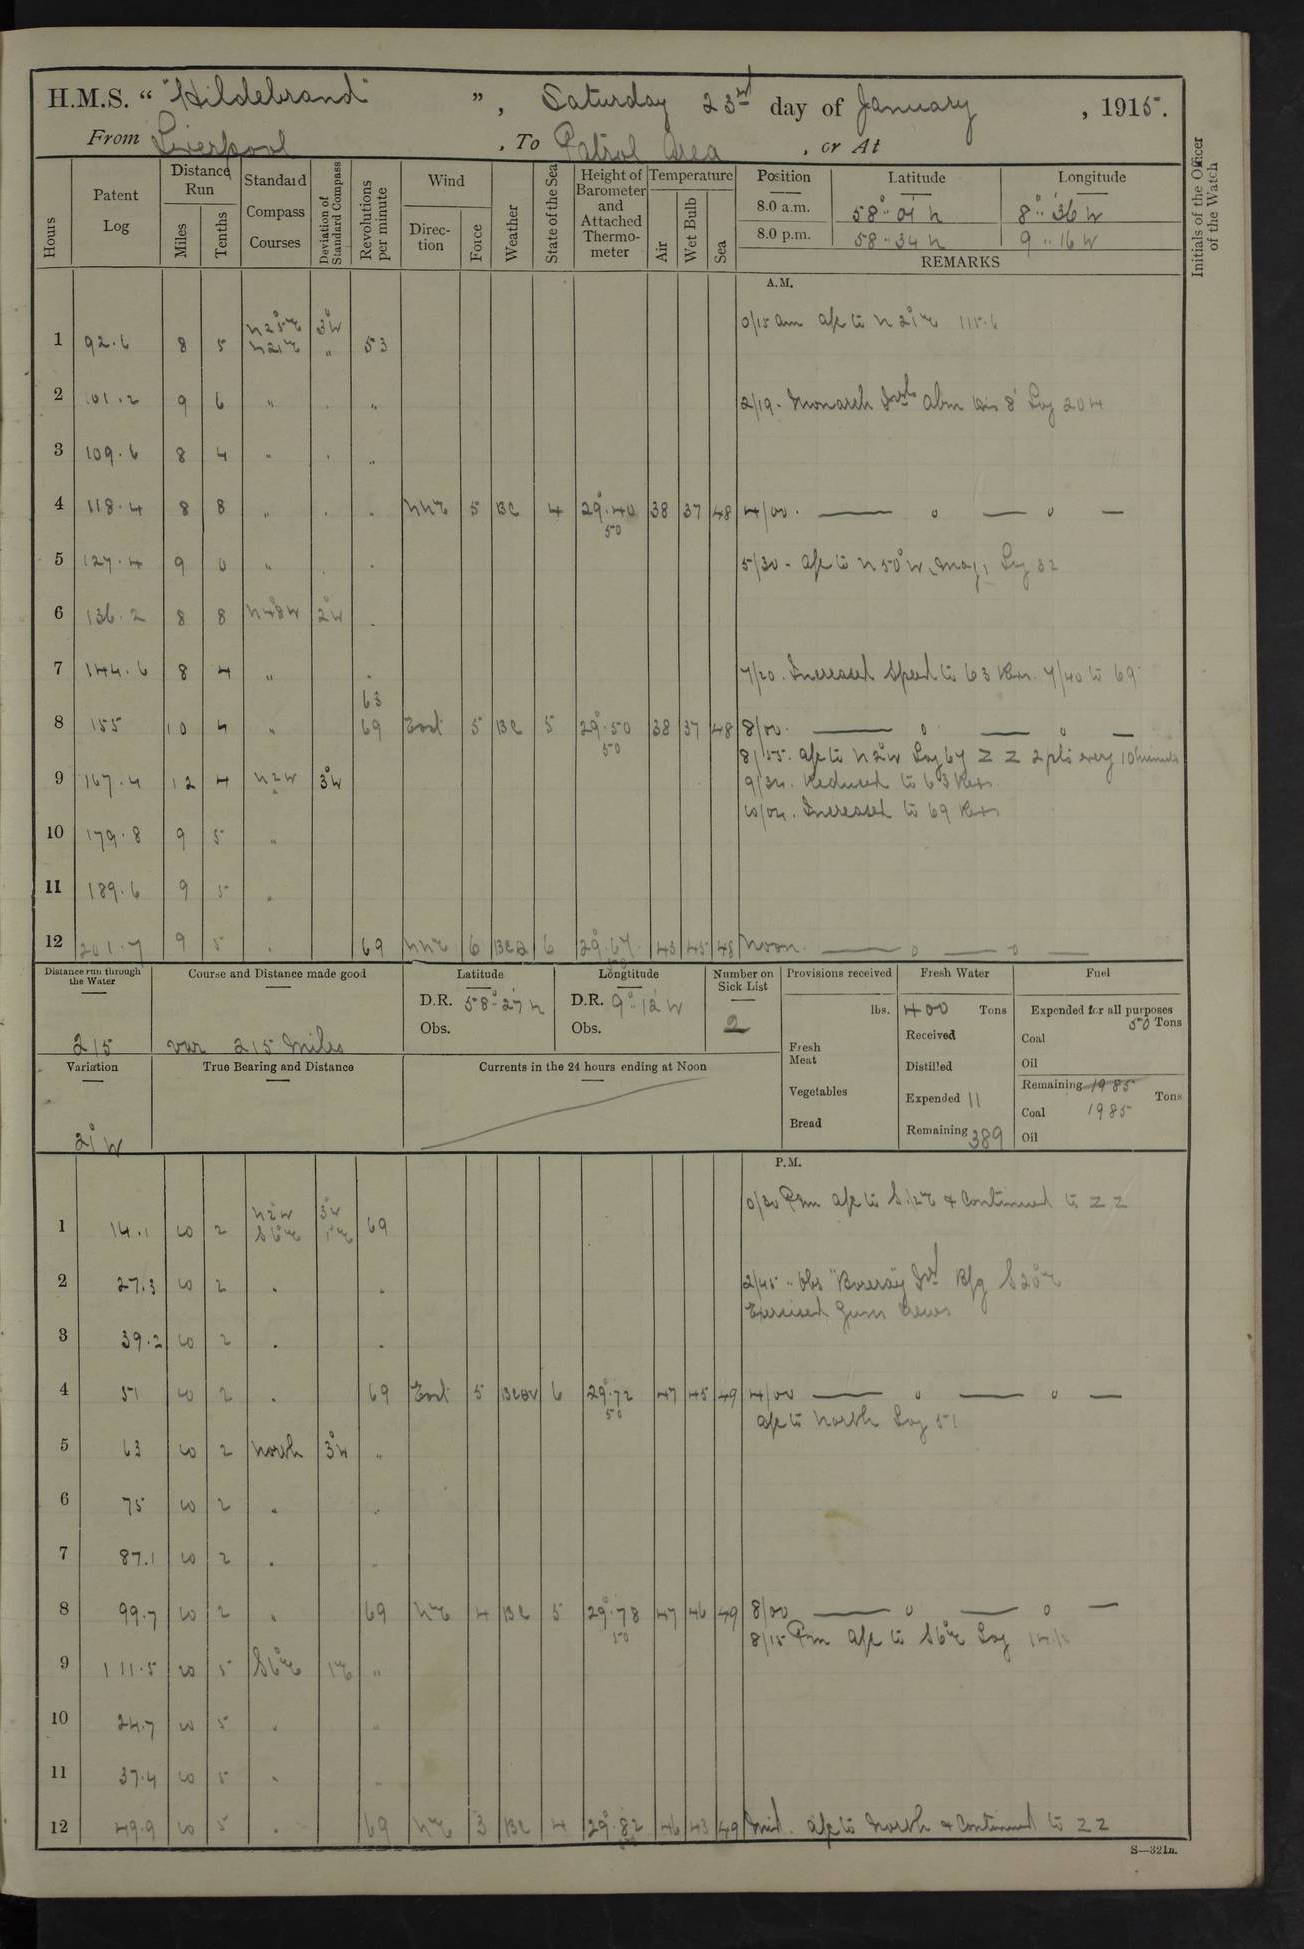 H.M.S. “ "Hildebrand" ” , Saturday 23rd day of January , 1915.
From Liverpool , To Patrol Area , or At
Hours
Patent Log
Distance Run
Miles
Tenths
Standard Compass Courses
Deviation of Standard Compass
Revolutions per minute
Wind
Direc-tion
Force
Weather
State of the Sea
Height of Barometer and Attached Thermo-meter
Temperature
Air
Wet Bulb
Sea
Position Latitude Longitude
8.0 a.m. 58° 01' N 8° 36 W
8.0 p.m. 58 .. 34 N 9 .. 16 W
REMARKS
Initials of the Officer of the Watch
A.M.
0/15 am a/c to N 21°E 115.6
N25°E 3°W
1 92.6 8 5 N21°E " 53
2 101.2 9 6 " . " 2/19 - Monarch abm dis 8' Log 204
3 109.6 8 4 " . "
4 118.4 8 8 " . . NNE 5 BC 4 29.40 38 37 48 4/00. — o — o —
50
5 127.4 9 0 " . . 5/30 - a/c to N 50°W. mag, Log 32
6 136.2 8 8 N48W 2°W .
7 144.6 8 4 " . 7/20. Increased Speed to 63 Revs. 7/40 to 69
63
8 155 10 4 " 69 East 5 BC 5 29.50 38 37 48 8/00. — o — o —
50
8/55. a/c to N2°W Log 67 Z Z 2 pts every 10 minutes
9 167.4 12 4 N2W 3°W 9/34. Reduced to 63 Revs
10/04. Increased to 69 Revs
10 179.8 9 5 "
11 189.6 9 5 "
12 201.7 9 5 . 69 NNE 6 6 29.67 43 45 48 Noon. — o — o —
Distance run through the Water
215
Course and Distance made good
var 215 miles
Latitude
D.R. 58° 27' N
Obs.
Longtitude
D.R. 9° 12' W
Obs.
Number on Sick List
2
Provisions received
lbs.
Fresh Meat
Vegetables
Bread
Fresh Water
400 Tons
Received
Distilled
Expended 11
Remaining 389
Fuel
Expended for all purposes
50 Tons
Coal
Oil
Remaining 1985
Tons
Coal 1985
Oil
Variation
21° W
True Bearing and Distance
Currents in the 24 hours ending at Noon
P.M.
0/30 Pm a/c to & continued to Z Z
N2W 3W
1 14.1 10 2 S6°E 1°E 69
2 27.3 10 2 . . 2/45 .. Obs "Boreray" Isd Bfg S20°E
Exercised Guns Crews
3 39.2 10 2 . .
4 51 10 2 . 69 East 5 6 29.72 47 45 49 4/00 — o — o —
50
a/c to North Log 51
5 63 10 2 North 3°W "
6 75 10 2 . "
7 87.1 10 2 . "
8 99.7 10 2 " 69 NE 4 BC 5 29.78 47 46 49 8/00 — o — o —
50
8/15 Pm a/c to S6°E Log
9 111.5 10 5 S6°E 1E "
10 24.7 10 5 . "
11 37.4 10 5 . "
12 49.9 10 5 . 69 NE 3 BC 4 29.82 46 43 49 Mid. a/c to North & continued to Z Z
S—321a.